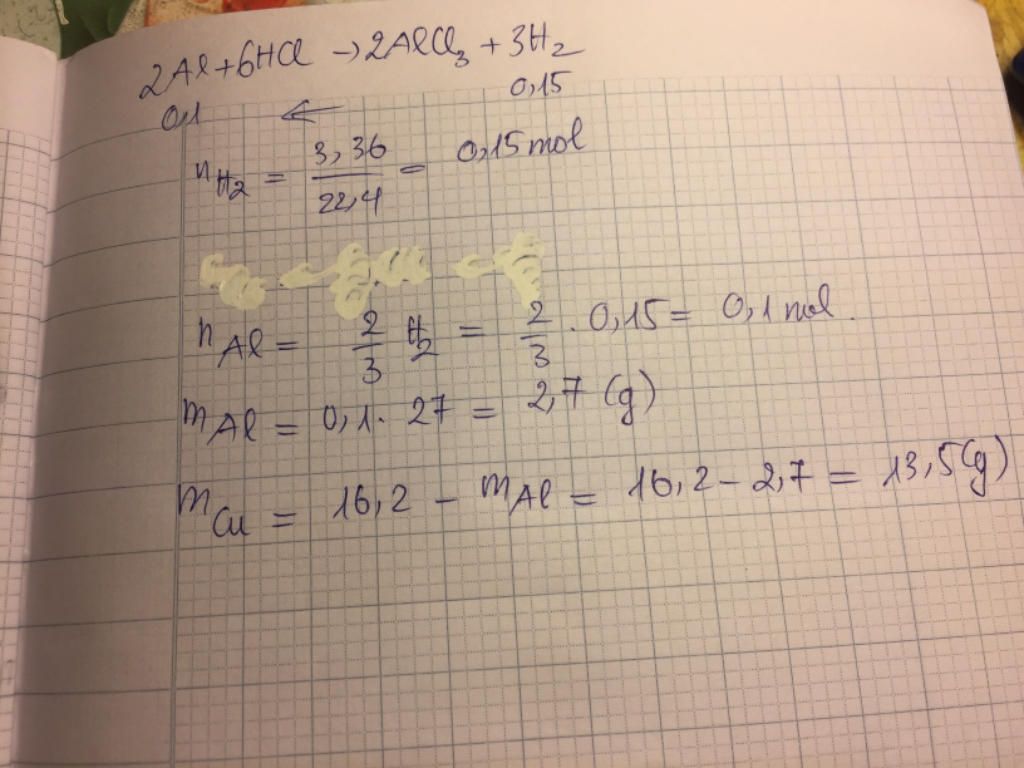 2Al+6HCl → 2AlCl₃ + 3H₂
0,1 ← 0,15
nH₂ = 3,36/22,4 = 0,15 mol
nAl = 2/3 H₂ = 2/3 · 0,15 = 0,1 mol.
mAl = 0,1 · 27 = 2,7 (g)
mCu = 16,2 - mAl = 16,2 - 2,7 = 13,5 (g)